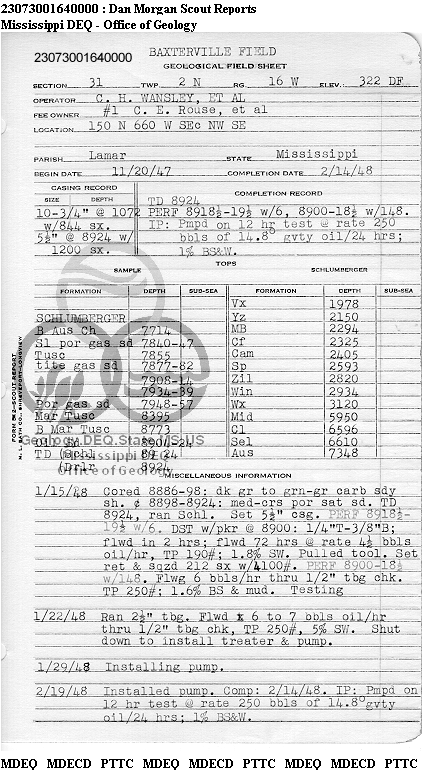 23073001640000 : Dan Morgan Scout Reports
Mississippi DEQ - Office of Geology
23073001640000 BAXTERVILLE FIELD
GEOLOGICAL FIELD SHEET
SECTION 31 TWP. 2 N RG. 16 W ELEV.: 322 DF
OPERATOR C. H. WANSLEY, ET AL
FEE OWNER #1 C. E. Rouse, et al
LOCATION 150 N 660 W SEc NW SE
PARISH Lamar STATE Mississippi
BEGIN DATE 11/20/47 COMPLETION DATE 2/14/48
CASING RECORD COMPLETION RECORD
SIZE DEPTH TD 8924
10-3/4" @ 1072 PERF 8918½-19½ w/6, 8900-18½ w/148.
w/844 sx. IP: Pmpd on 12 hr test @ rate 250
5½" @ 8924 w/ bbls of 14.8° gvty oil/24 hrs;
1200 sx. 1% BS&W.
SAMPLE TOPS SCHLUMBERGER
FORMATION DEPTH SUB-SEA FORMATION DEPTH SUB-SEA
Vx 1978
SCHLUMBERGER Yz 2150
B Aus Ch 7714 MB 2294
Sl por gas sd 7840-47 Cf 2325
Tusc 7855 Cam 2405
tite gas sd 7877-82 Sp 2593
7908-14 Zil 2820
7934-39 Win 2934
Por gas sd 7948-57 Wx 3120
Mar Tusc 8395 Mid 5950
B Mar Tusc 8773 Cl 6596
Oil Sd 8904-24 Sel 6610
TD (Schl 8924 Aus 7348
(Drlr 8924
Geology.DEQ.State.MS.US
Mississippi DEQ
Office of Geology
FORM SR-2—SCOUT REPORT
MISCELLANEOUS INFORMATION
1/15/48 Cored 8886-98: dk gr to grn-gr carb sdy
sh. ¢ 8898-8924: med-crs por sat sd. TD
8924, ran Schl. Set 5½" csg. PERF 8918½-
19½ w/6. DST w/pkr @ 8900: 1/4"T-3/8"B;
flwd in 2 hrs; flwd 72 hrs @ rate 4½ bbls
oil/hr, TP 190#; 1.8% SW. Pulled tool. Set
ret & sqzd 212 sx w/4100#. PERF 8900-18½
w/148. Flwg 6 bbls/hr thru 1/2" tbg chk.
TP 250#; 1.6% BS & mud. Testing
1/22/48 Ran 2½" tbg. Flwd x 6 to 7 bbls oil/hr
thru 1/2" tbg chk, TP 250#, 5% SW. Shut
down to install treater & pump.
1/29/48 Installing pump.
2/19/48 Installed pump. Comp: 2/14/48. IP: Pmpd on
12 hr test @ rate 250 bbls of 14.8° gvty
oil/24 hrs; 1% BS&W.
MDEQ MDECD PTTC MDEQ MDECD PTTC MDEQ MDECD PTTC MDEQ MDECD PTTC